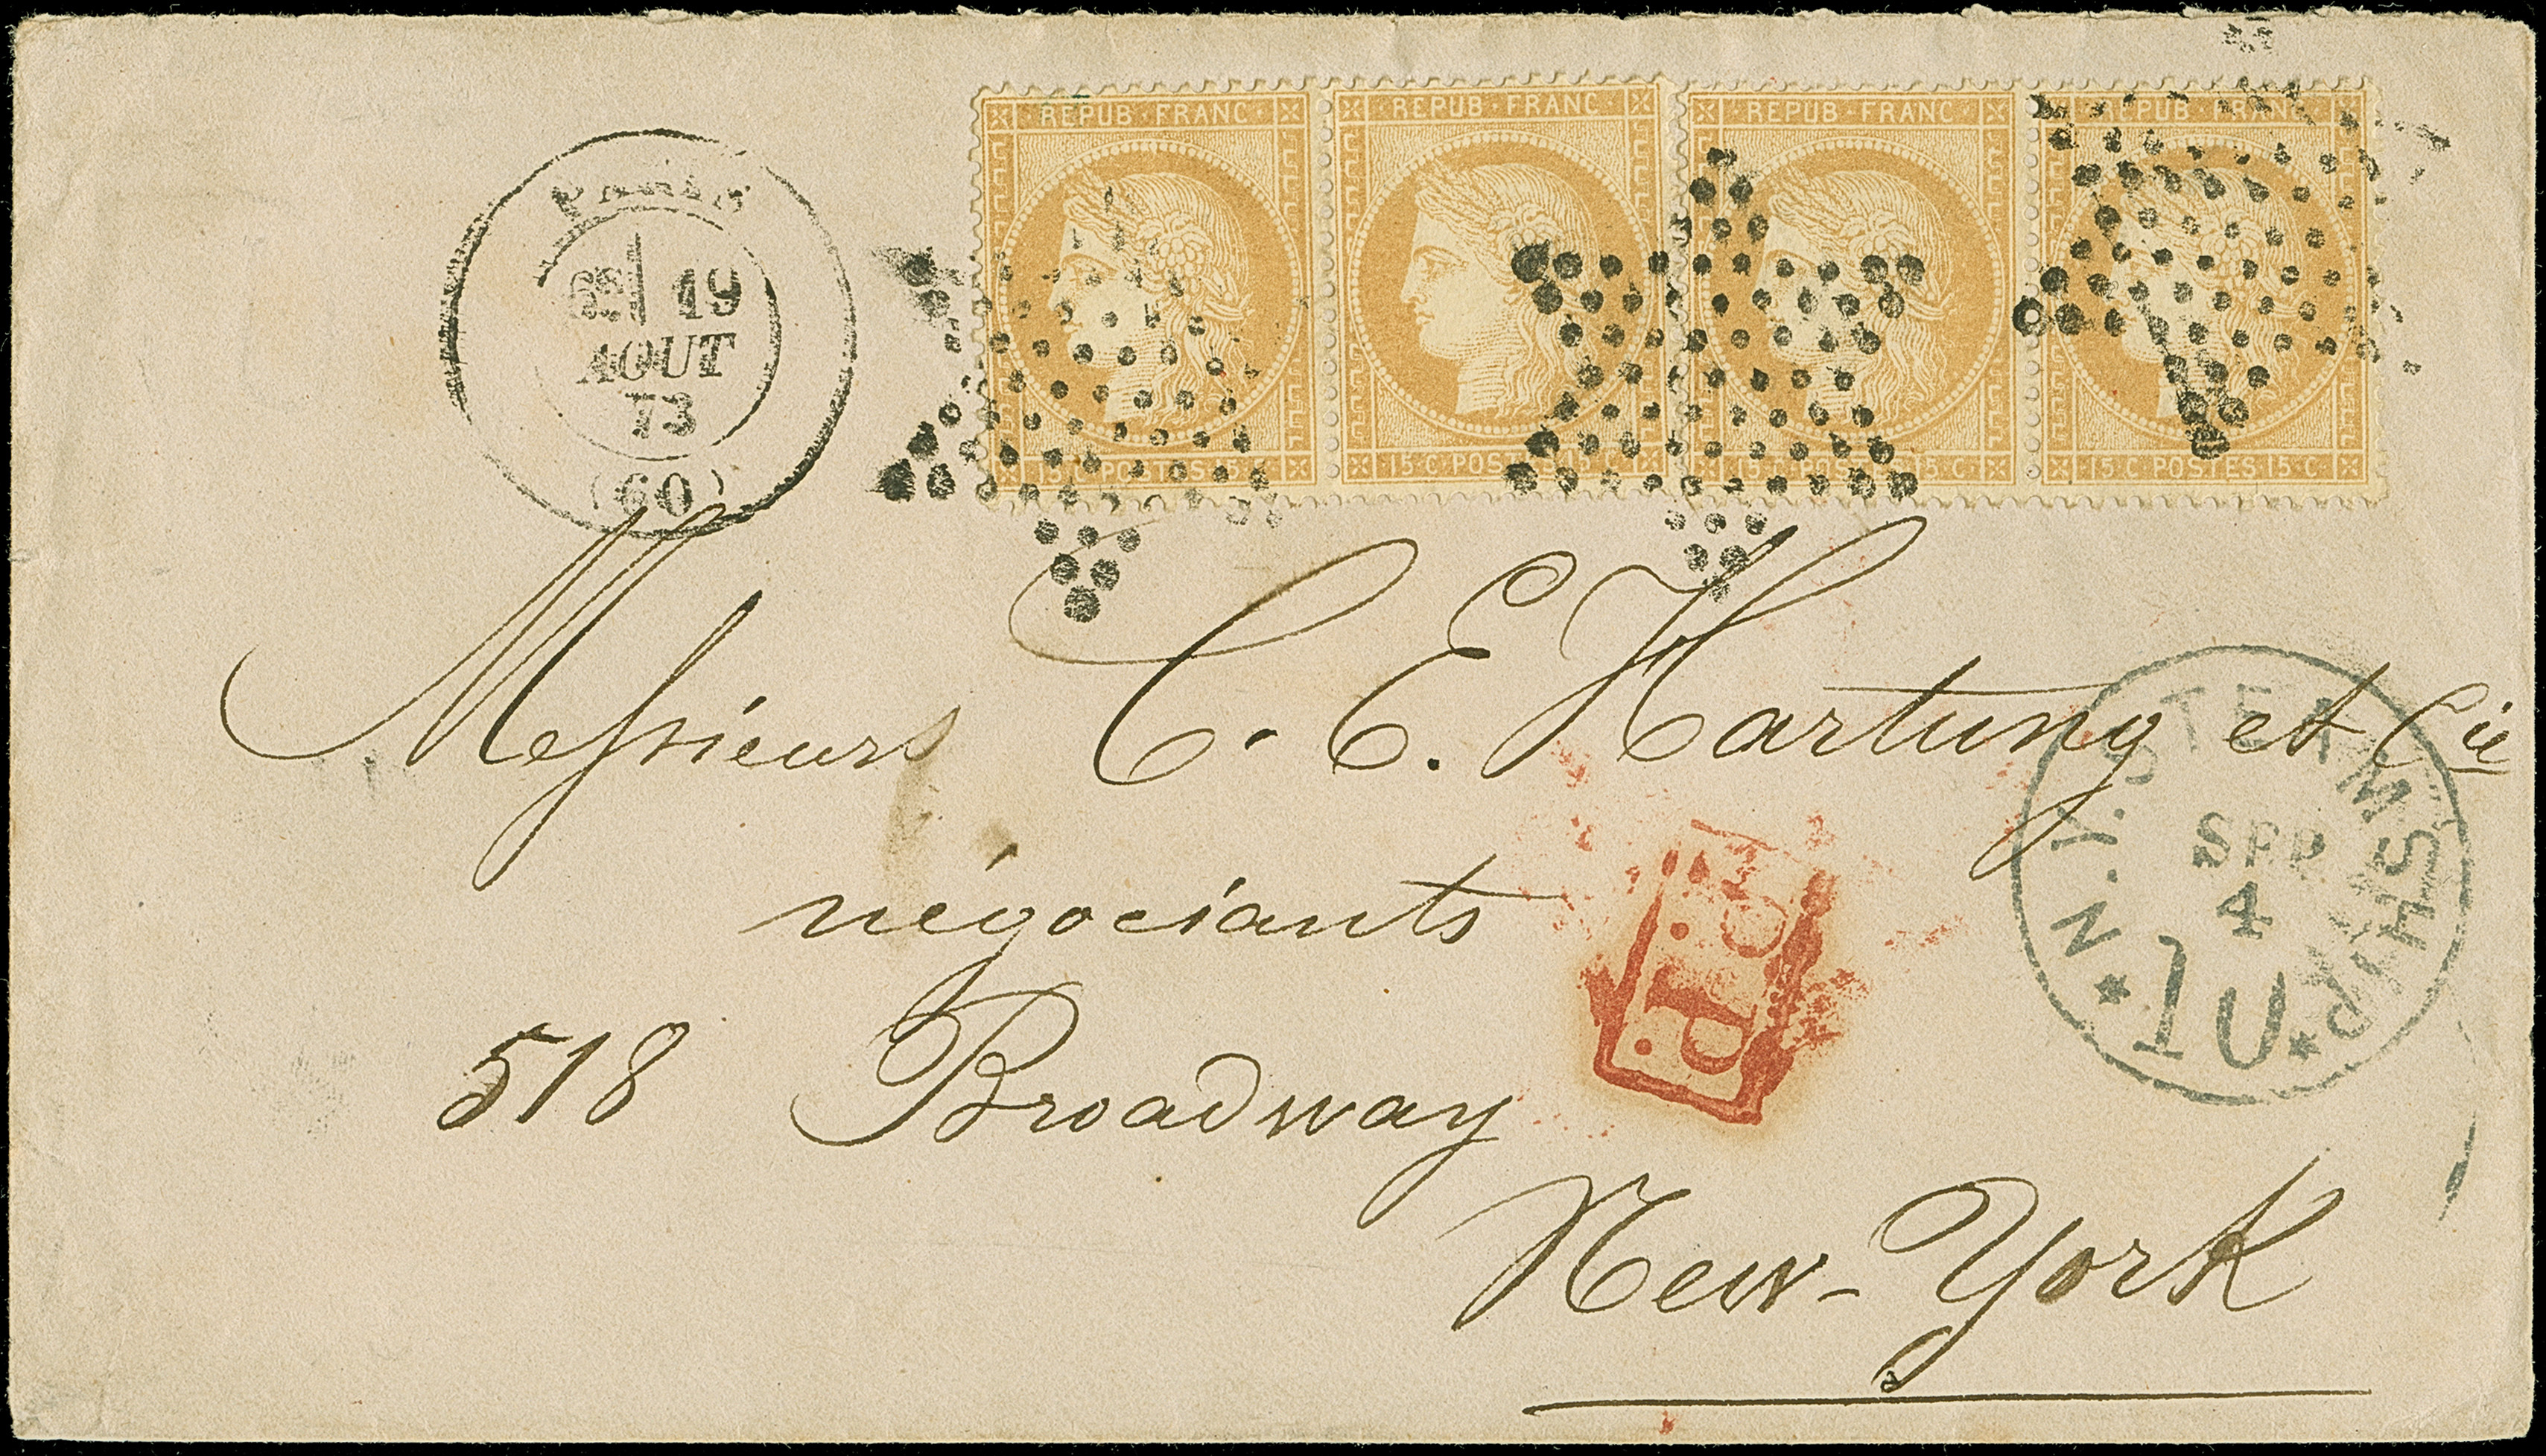 REPUB · FRANC ·
15 C. POSTES 15 C.
REPUB · FRANC ·
15 C. POSTES
REPUB · FRANC ·
15 C. POSTES 15 C.
REPUB · FRANC ·
15 C. POSTES 15 C.
PARIS
19
AOUT
73
(60)
Messieurs C. E. Hartung et Cie
négociants
518 Broadway
New-York
P.D.
N.Y. STEAMSHIP
SEP.
4
10